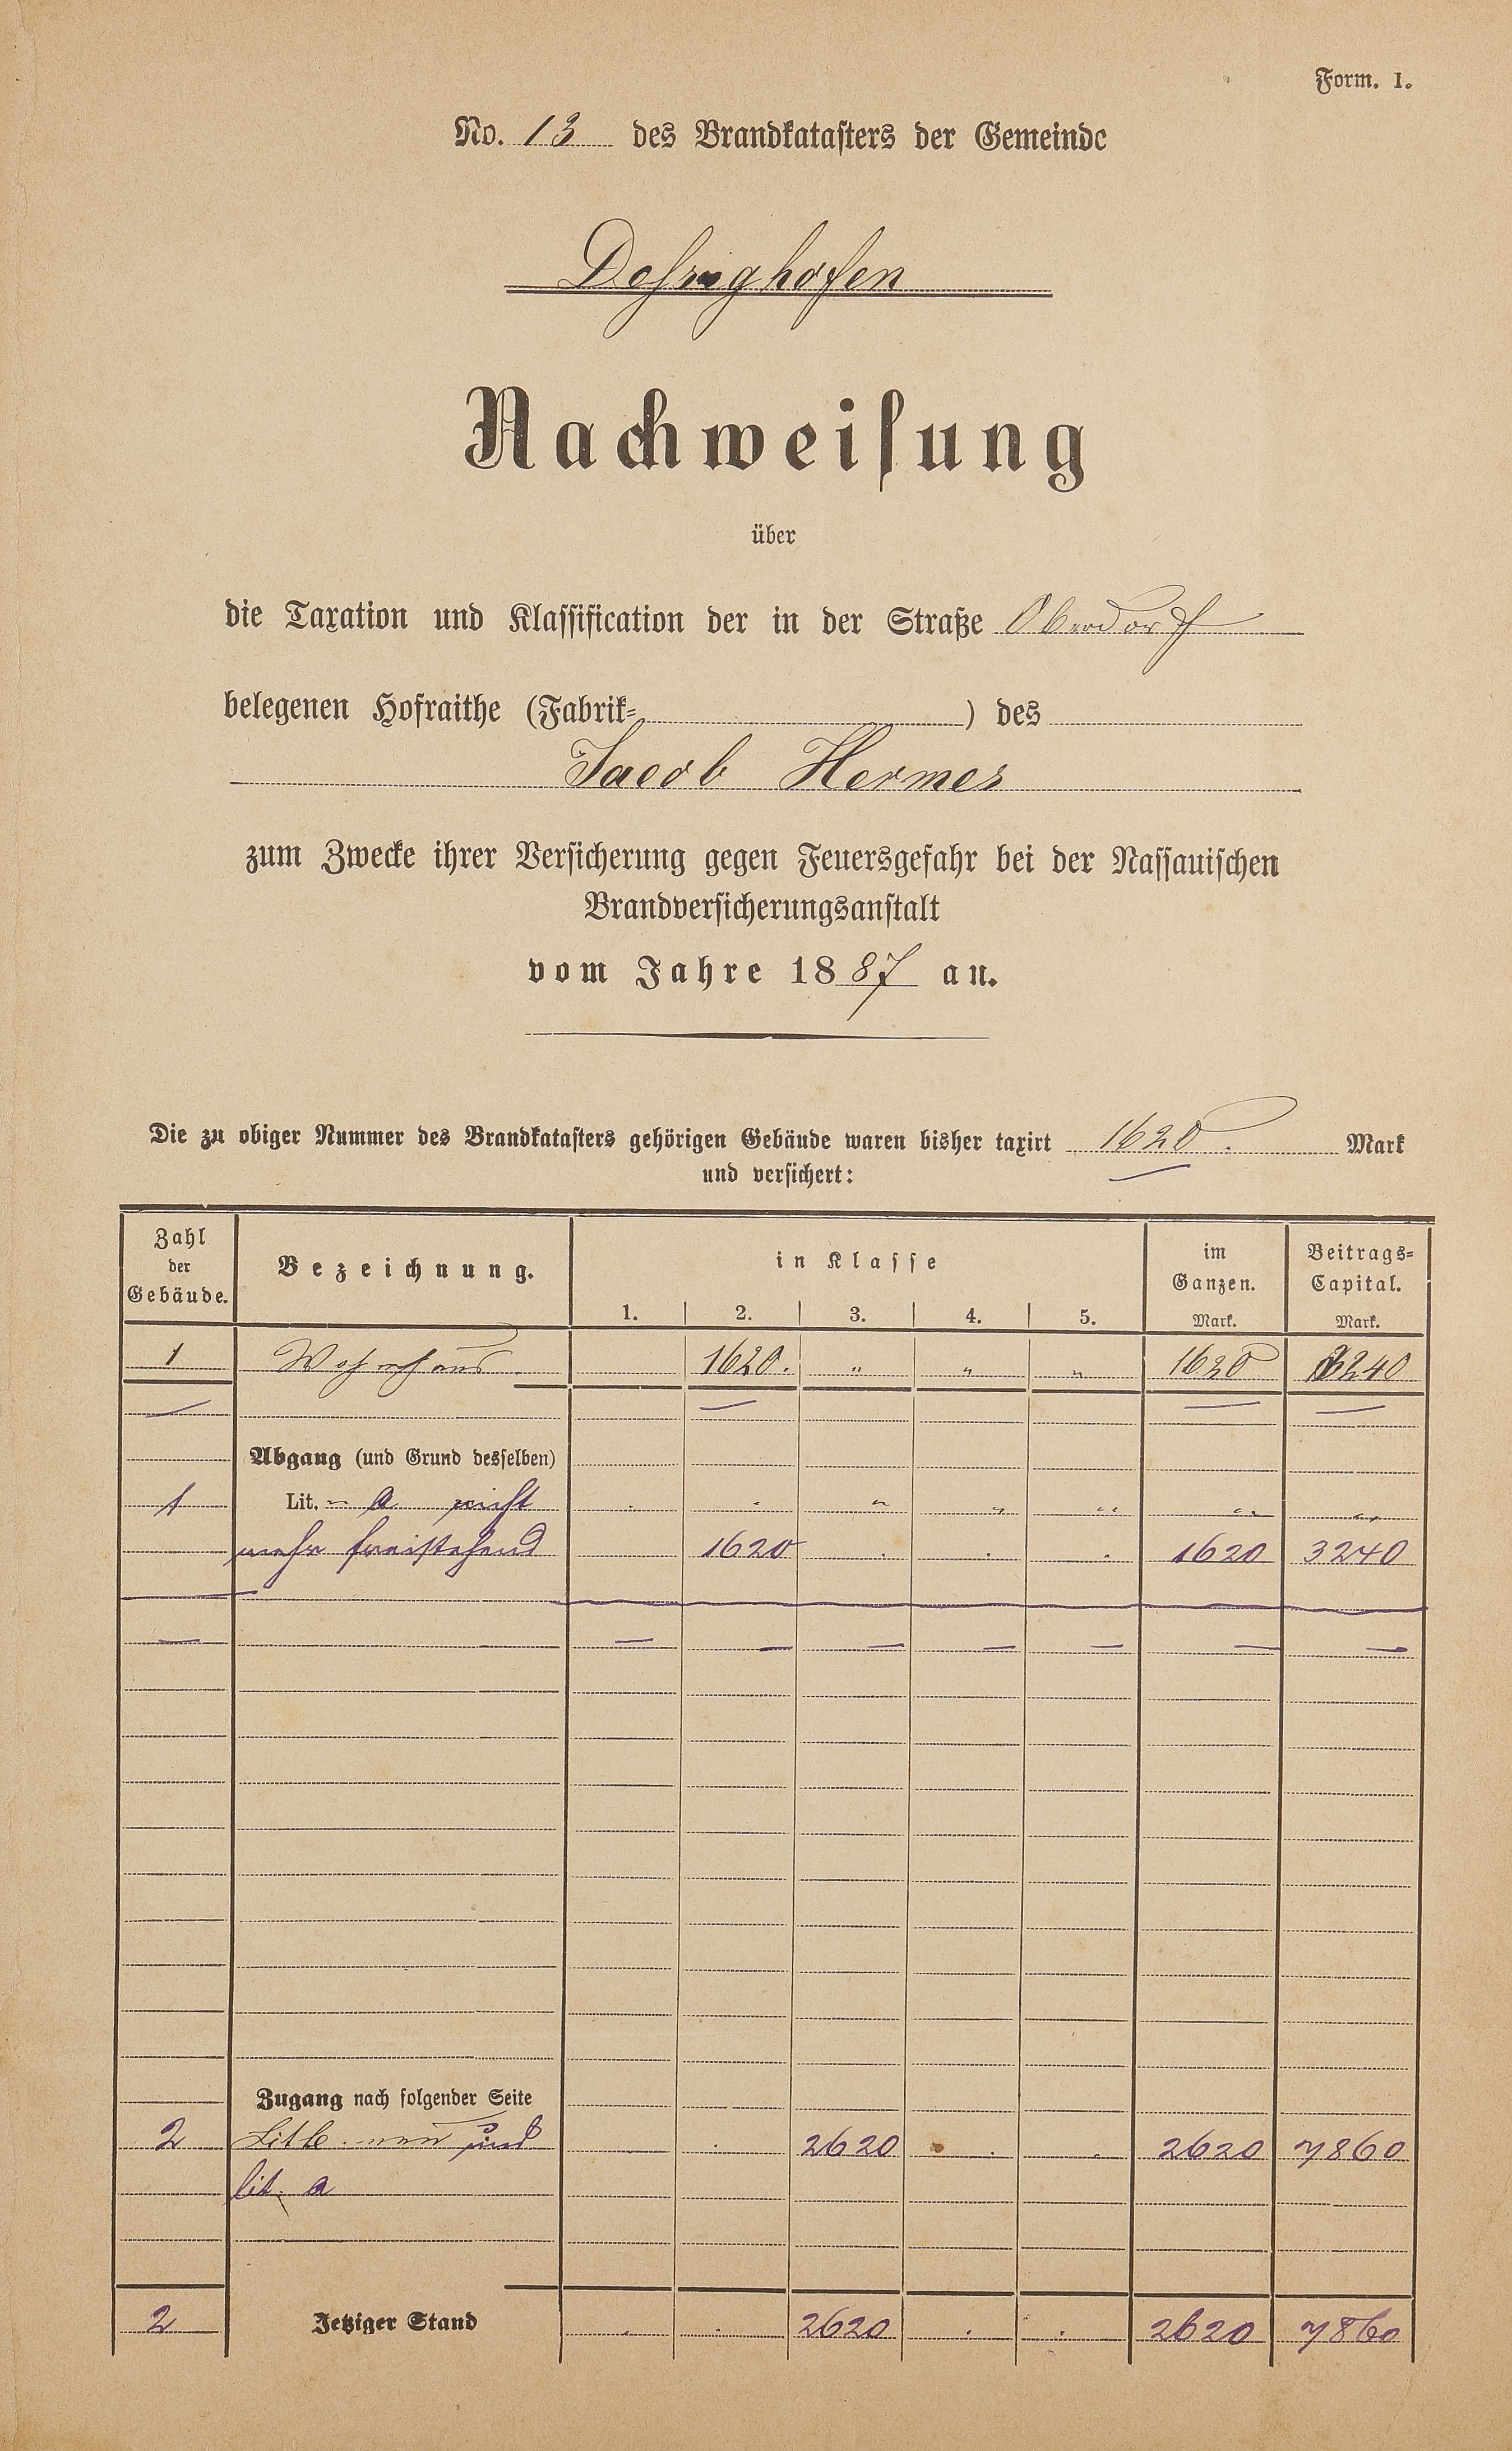 Form. I.
No. 13 des Brandkatasters der Gemeinde
Dehrighofen
Nachweisung
über
die Taxation und Klassification der in der Straße Oberdorf
belegenen Hofraithe (Fabrik= ) des
Jacob Hermes
zum Zwecke ihrer Versicherung gegen Feuersgefahr bei der Nassauischen
Brandversicherungsanstalt
vom Jahre 1887 an.
Die zu obiger Nummer des Brandkatasters gehörigen Gebäude waren bisher taxirt 1620. Mark
und versichert:
Zahl der Gebäude. Bezeichnung. in Klasse 1. 2. 3. 4. 5. im Ganzen. Mark. Beitrags=Capital. Mark.
1 Wohnhaus 1620. " " " 1620 3240
Abgang (und Grund desselben)
1 Lit. a nicht
mehr freistehend 1620 . . . 1620 3240
Zugang nach folgender Seite
2 Lit b. neu und . . 2620 . . 2620 7860
lit. a
2 Jetziger Stand . . 2620 . . 2620 7860